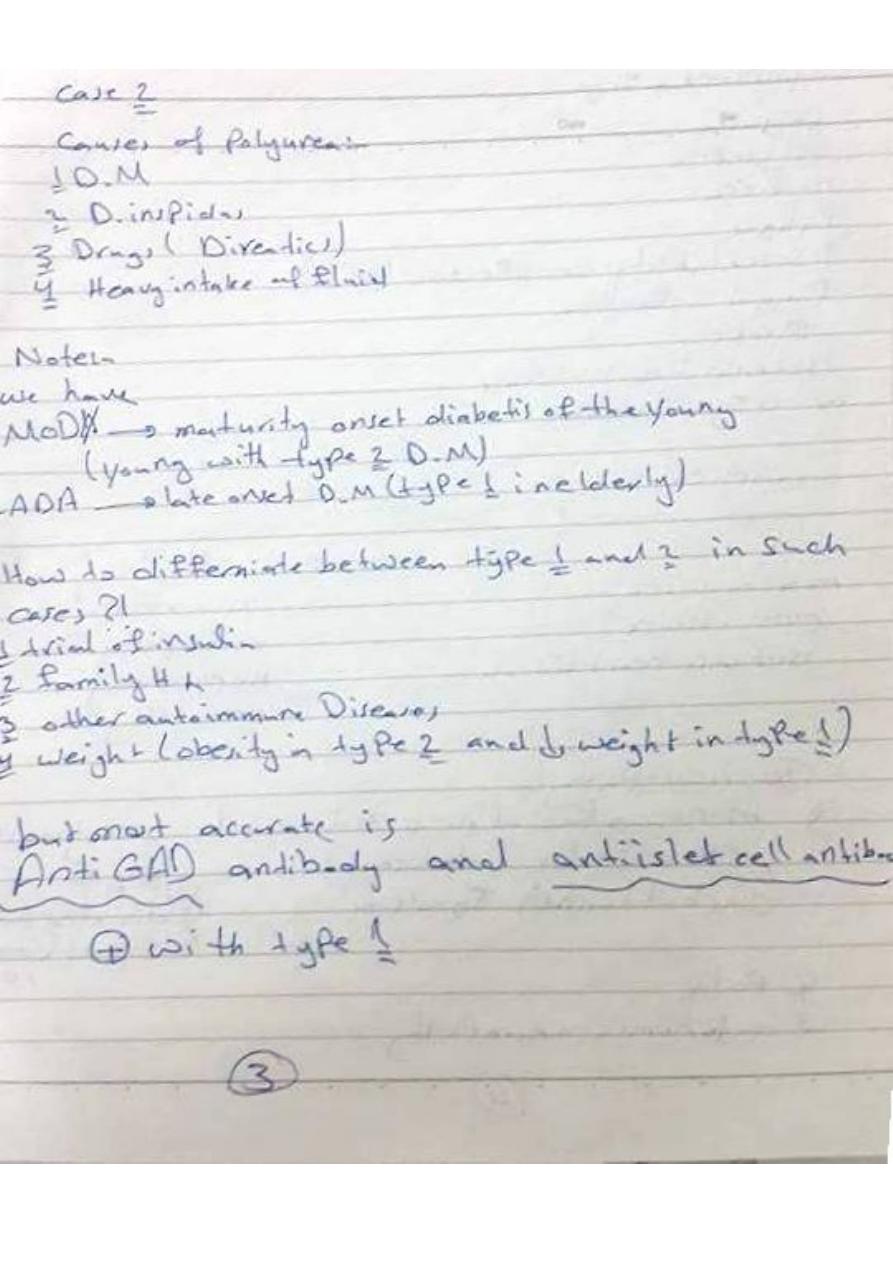 Case 2
Causes of Polyurea:-
1 D.M
2 D.inspidus
3 Drugs (Direutics)
4 Heavy intake of fluid
Note:-
we have
MODY → maturity onset diabetis of the young
(young with type 2 D.M)
LADA → late onset D.M (type 1 in elderly)
How to differniate between type 1 and 2 in such
cases ?!
1 trial of insulin
2 family Hx
3 other autoimmune Diseases
4 weight (obesity in type 2 and ↓ weight in type 1)
but most accurate is
Anti GAD antibody and antiislet cell antibo
⊕ with type 1
3